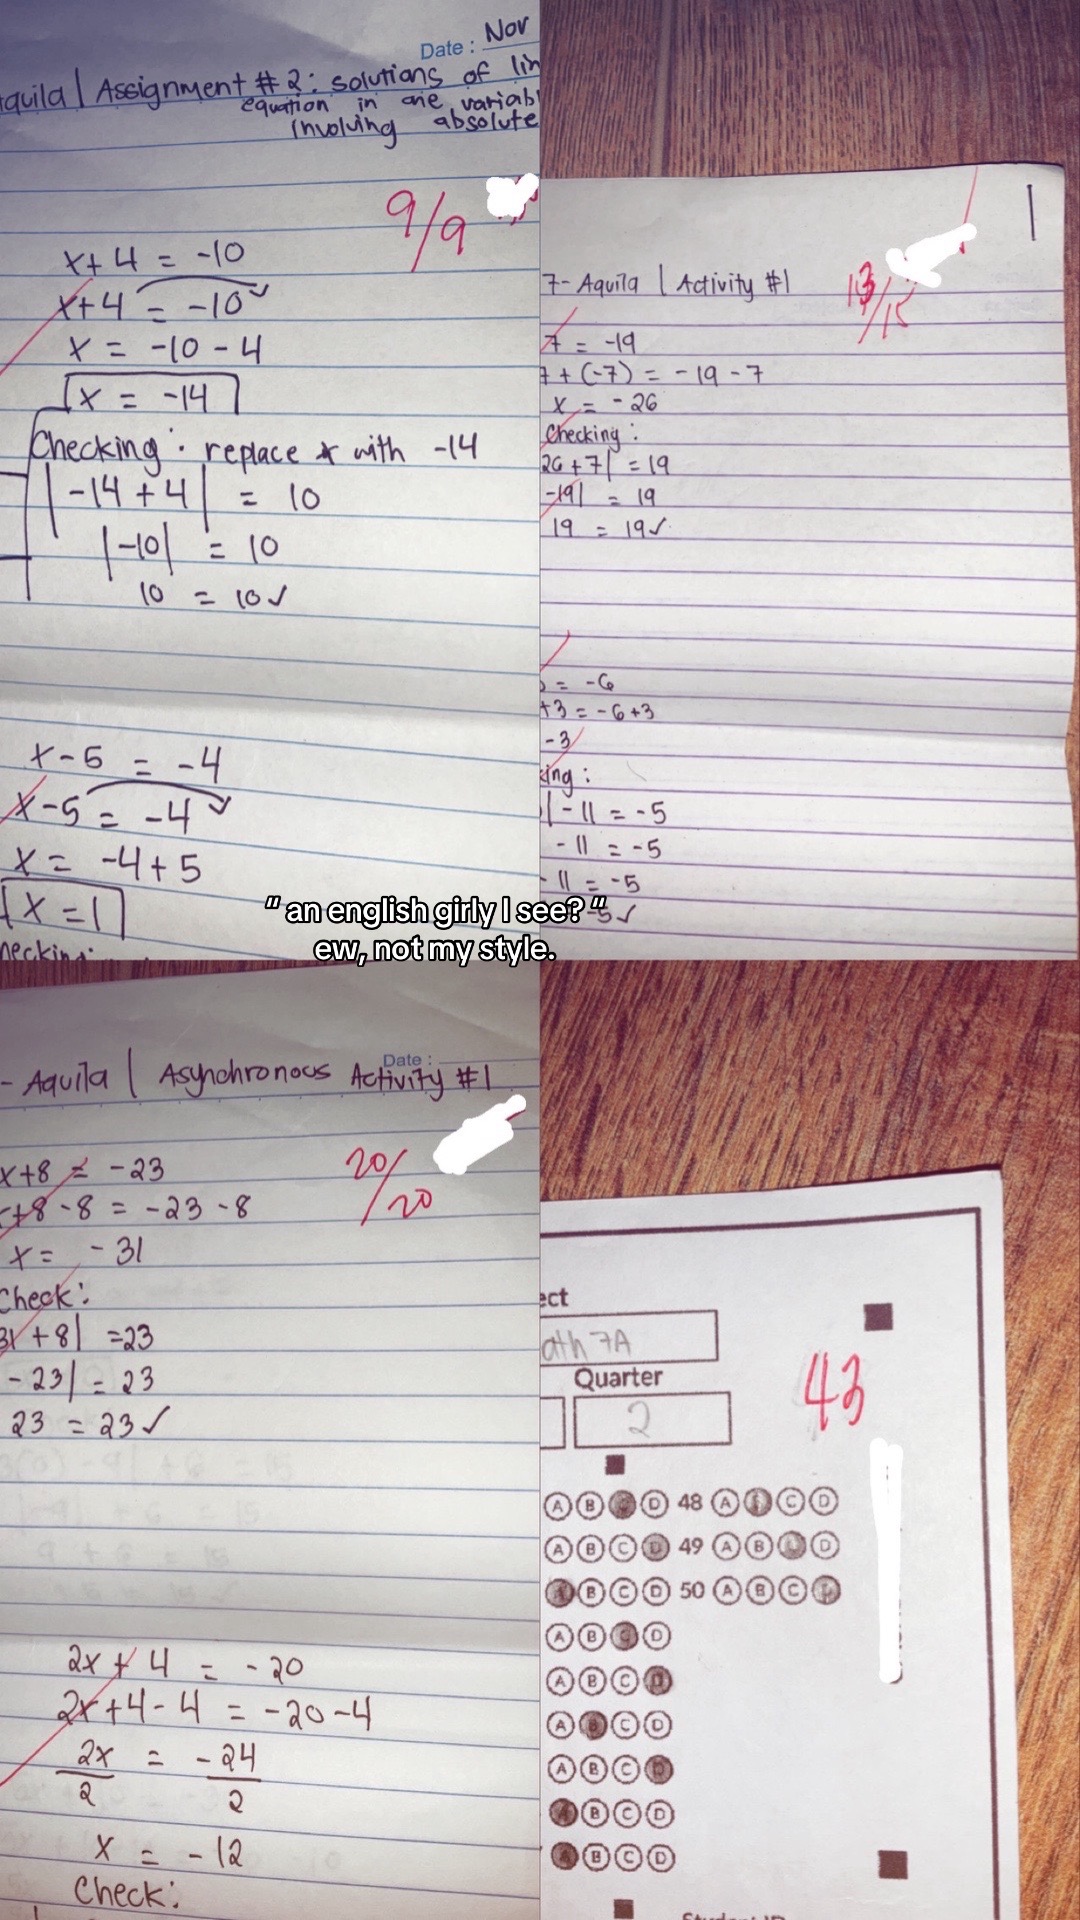 Date : Nor
Aquila | Assignment # 2: solutions of lin
equation in one variabl
involving absolute
9/9
x+ 4 = -10
x+4 = -10
x = -10 - 4
x = -14
Checking : replace x with -14
|-14 + 4| = 10
|-10| = 10
10 = 10✓
x-5 = -4
x-5 = -4
x = -4+5
x = 1
hecking:
7- Aquila | Activity #1
13/15
7 = -19
7 + (-7) = -19 -7
x = -26
Checking :
26 + 7| = 19
-19| = 19
19 = 19✓
= -6
+3 = -6+3
-3
king :
| - 11 = -5
- 11 = -5
- 11 = -5
-5✓
“ an english girly I see? “
ew, not my style.
- Aquila | Asynchronous Activity #1
Date :
20/20
x+8 = -23
x+8 - 8 = -23 -8
x = -31
Check:
31 + 8| =23
- 23| = 23
23 = 23✓
2x + 4 = -20
2x+4- 4 = -20-4
2x = -24
2 2
x = -12
Check:
ect
ath 7A
Quarter
2
43
A B C D 48 A B C D
A B C D 49 A B C D
A B C D 50 A B C D
A B C D
A B C D
A B C D
A B C D
A B C D
A B C D